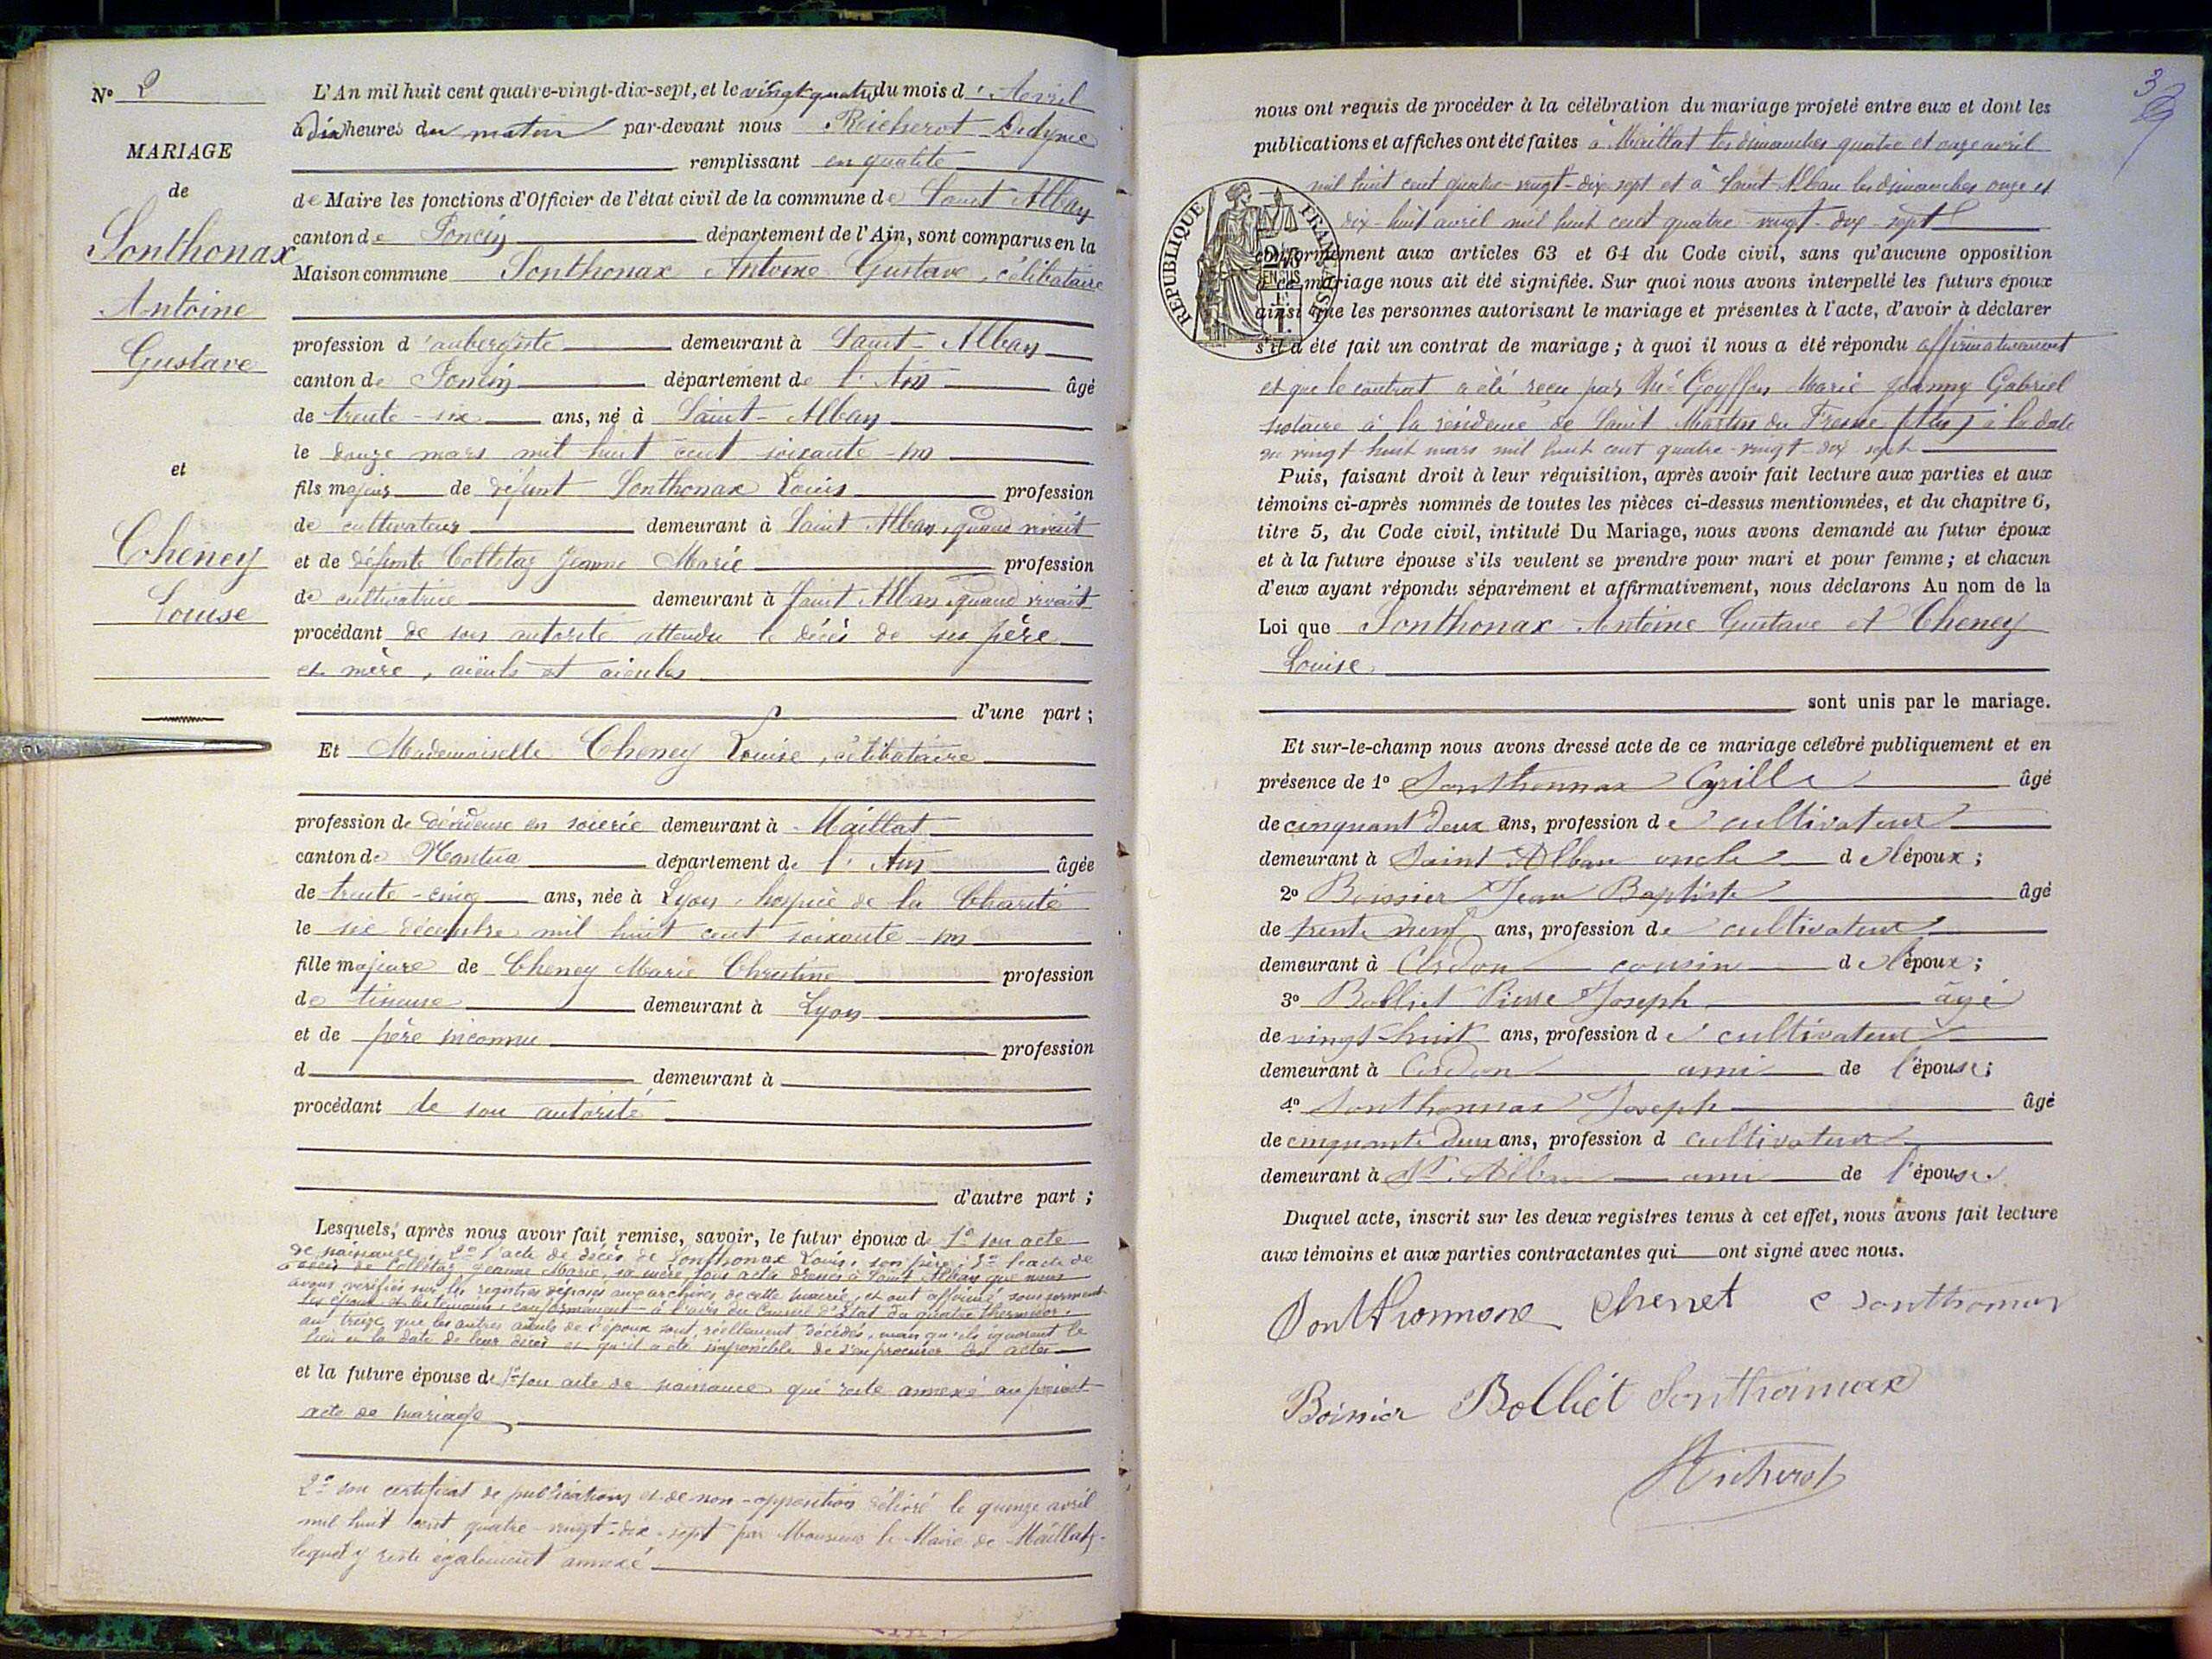 N° 2
MARIAGE
de
Sonthonax
Antoine
Gustave
et
Cheney
Louise
L'An mil huit cent quatre-vingt-dix-sept, et le vingt quatre du mois d'Avril
à dix heures du matin par-devant nous Richerot
remplissant en qualité
de Maire les fonctions d'Officier de l'état civil de la commune de Saint Alban
canton de Poncin département de l'Ain, sont comparus en la
Maison commune Sonthonax Antoine Gustave, célibataire
profession d'aubergiste demeurant à Saint-Alban
canton de Poncin département de l'Ain âgé
de trente-six ans, né à Saint-Alban
le douze mars mil huit cent soixante-un
fils majeur de défunt Sonthonax Louis profession
de cultivateur demeurant à Saint Alban, quand vivait
et de défunte Colletaz Jeanne Marie profession
de cultivatrice demeurant à Saint Alban, quand vivait
procédant de son autorité attendu le décès de ses père
et mère, aïeuls et aïeules
d'une part ;
Et Mademoiselle Cheney Louise, célibataire
profession de dévideuse en soierie demeurant à Maillat
canton de Nantua département de l'Ain âgée
de trente-cinq ans, née à Lyon, hospice de la Charité
le six décembre mil huit cent soixante-un
fille majeure de Cheney Marie Christine profession
de demeurant à Lyon
et de père inconnu profession
d demeurant à
procédant de son autorité
d'autre part ;
Lesquels, après nous avoir fait remise, savoir, le futur époux de 1° son acte
de naissance, 2° l'acte de décès de Sonthonax Louis, son père, 3° l'acte de
décès de Colletaz Jeanne Marie, sa mère, tous actes dressés à Saint Alban que nous
avons vérifiés sur les registres déposés aux archives de cette mairie, et ont affirmé, sous serment
les époux et les témoins, conformément à l'avis du Conseil d'Etat du quatre thermidor
an treize, que les autres aïeuls de l'époux sont réellement décédés, mais qu'ils ignorent le
lieu et la date de leur décès et qu'il a été impossible de s'en procurer les actes
et la future épouse de 1° son acte de naissance qui reste annexé au présent
acte de mariage
2° son certificat de publications et de non-opposition délivré le quinze avril
mil huit cent quatre-vingt-dix-sept par Monsieur le Maire de Maillat,
lequel y reste également annexé
3
nous ont requis de procéder à la célébration du mariage projeté entre eux et dont les
publications et affiches ont été faites à Maillat les dimanches quatre et onze avril
mil huit cent quatre-vingt-dix-sept et à Saint-Alban les dimanches onze et
dix-huit avril mil huit cent quatre-vingt-dix-sept
conformément aux articles 63 et 64 du Code civil, sans qu'aucune opposition
à ce mariage nous ait été signifiée. Sur quoi nous avons interpellé les futurs époux
ainsi que les personnes autorisant le mariage et présentes à l'acte, d'avoir à déclarer
s'il a été fait un contrat de mariage ; à quoi il nous a été répondu affirmativement
et que le contrat a été reçu par Me Goyffon Marie Joanny Gabriel
notaire à la résidence de Saint Martin du Fresne (Ain) à la date
du vingt huit mars mil huit cent quatre-vingt-dix sept
RÉPUBLIQUE FRANÇAISE
Puis, faisant droit à leur réquisition, après avoir fait lecture aux parties et aux
témoins ci-après nommés de toutes les pièces ci-dessus mentionnées, et du chapitre 6,
titre 5, du Code civil, intitulé Du Mariage, nous avons demandé au futur époux
et à la future épouse s'ils veulent se prendre pour mari et pour femme ; et chacun
d'eux ayant répondu séparément et affirmativement, nous déclarons Au nom de la
Loi que Sonthonax Antoine Gustave et Cheney
Louise
sont unis par le mariage.
Et sur-le-champ nous avons dressé acte de ce mariage célébré publiquement et en
présence de 1° Sonthonnax Cyrille âgé
de cinquant deux ans, profession de cultivateur
demeurant à Saint Alban oncle de l'époux ;
2° Boissier Jean Baptiste âgé
de trente neuf ans, profession de cultivateur
demeurant à Cerdon cousin de l'époux ;
3° Bolliet Pierre Joseph âgé
de vingt-huit ans, profession de cultivateur
demeurant à Cerdon ami de l'épouse ;
4° Sonthonnax Joseph âgé
de cinquante deux ans, profession d cultivateur
demeurant à St Alban ami de l'épouse.
Duquel acte, inscrit sur les deux registres tenus à cet effet, nous avons fait lecture
aux témoins et aux parties contractantes qui ont signé avec nous.
Sonthonnax Chenet C Sonthonax
Boissier Bolliet Sonthonnax
Richerot